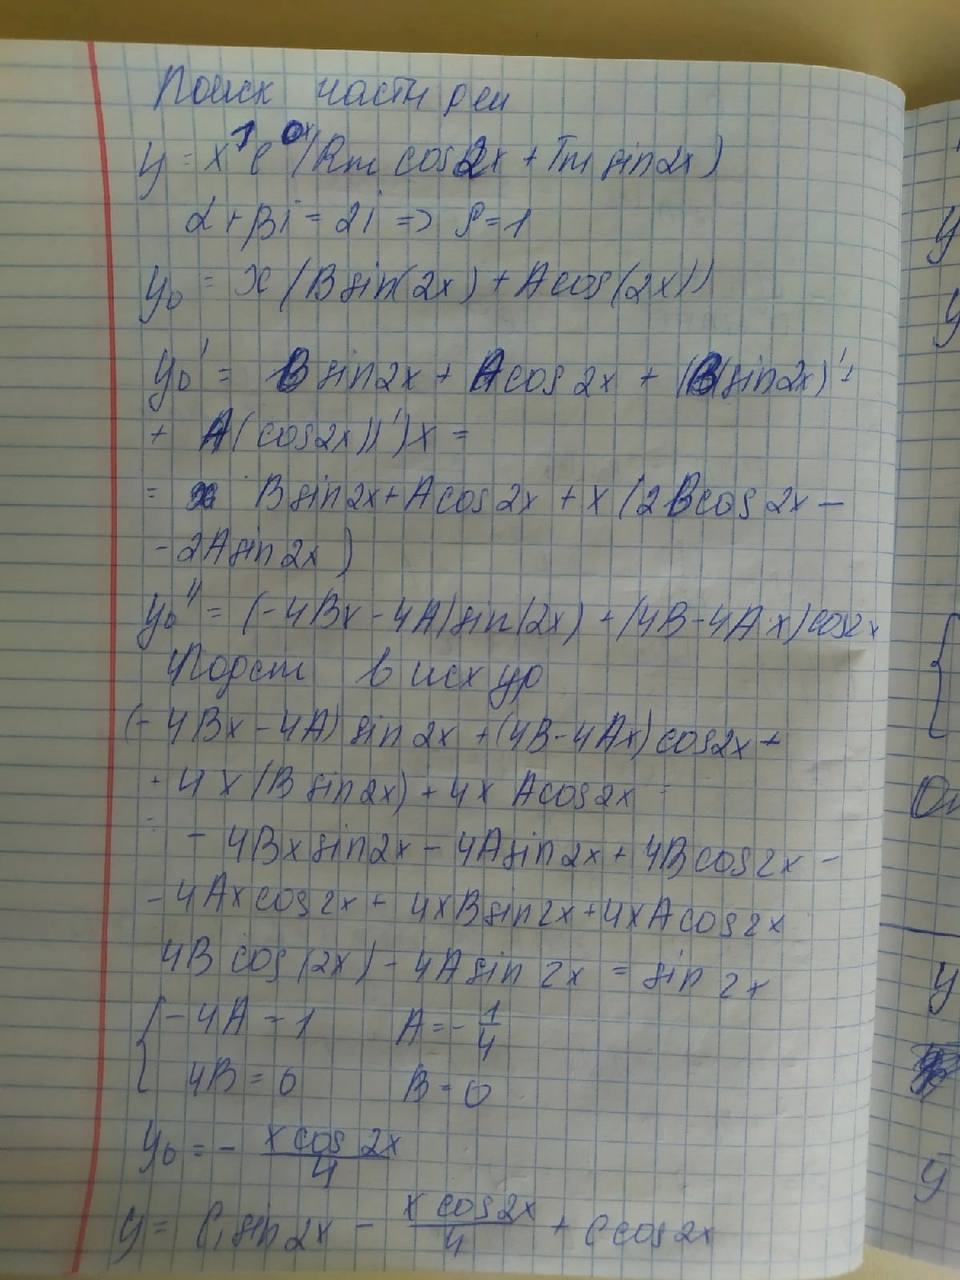 Поиск частн реш
y = x¹ e⁰ˣ (Rm cos2x + Tm sin2x)
α+βi = 2i => S=1
y₀ = x (B sin(2x) + A cos(2x))
y₀' = B sin2x + A cos 2x + (B(sin2x)' +
+ A(cos2x))')x =
= B sin2x + A cos 2x + x (2B cos 2x –
- 2A sin 2x)
y₀'' = (-4Bx - 4A) sin(2x) + (4B-4Ax) cos2x
Подст в исх ур
(-4Bx - 4A) sin 2x + (4B-4Ax) cos2x +
+ 4x (B sin2x) + 4x A cos2x =
= - 4Bx sin2x - 4A sin2x + 4B cos2x -
- 4Ax cos2x + 4xB sin2x + 4xA cos2x
4B cos(2x) - 4A sin 2x = sin 2x
{ -4A = 1 A = - 1/4
4B = 0 B = 0
y₀ = - x cos 2x / 4
y = C₁ sin 2x - x cos2x / 4 + C cos2x
y
y
{
y
y